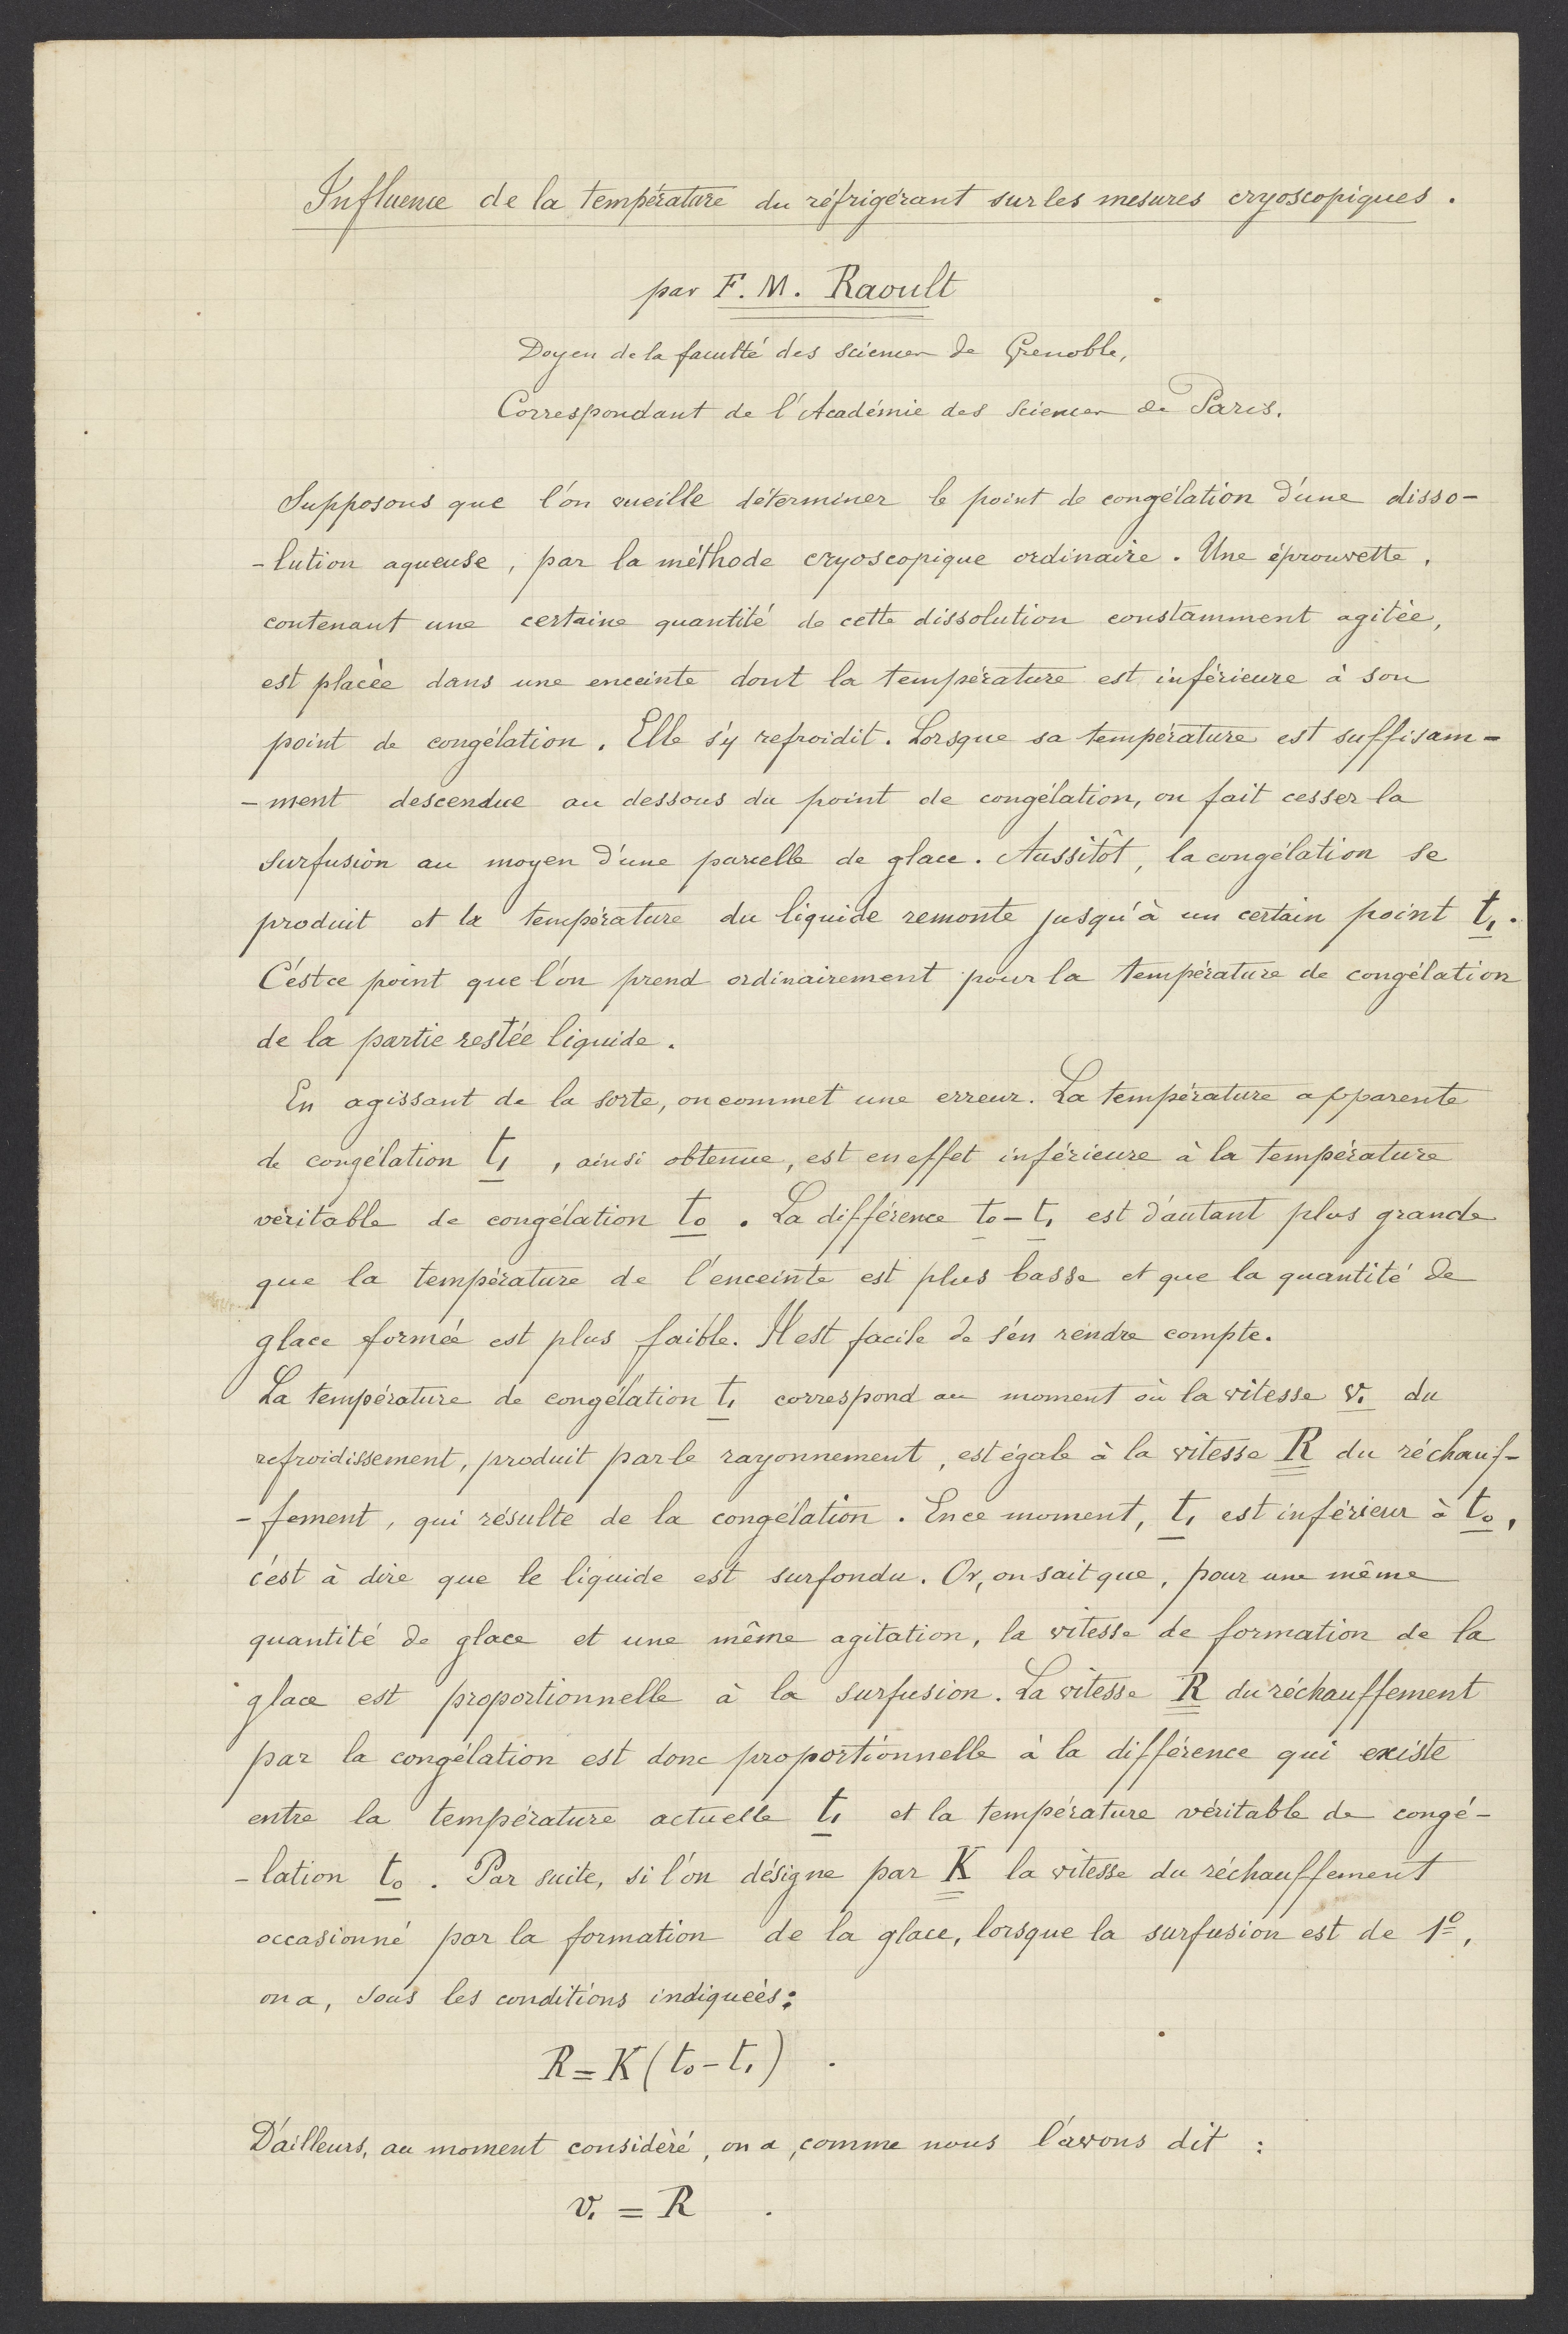 Influence de la température du réfrigérant sur les mesures cryoscopiques.
par F. M. Raoult
Doyen de la faculté des sciences de Grenoble,
Correspondant de l'Académie des Sciences de Paris.
Supposons que l'on veuille déterminer le point de congélation d'une disso-
-lution aqueuse, par la méthode cryoscopique ordinaire. Une éprouvette,
contenant une certaine quantité de cette dissolution constamment agitée,
est placée dans une enceinte dont la température est inférieure à son
point de congélation. Elle s'y refroidit. Lorsque sa température est suffisam-
-ment descendue au dessous du point de congélation, on fait cesser la
surfusion au moyen d'une parcelle de glace. Aussitôt, la congélation se
produit et la température du liquide remonte jusqu'à un certain point t₁.
C'est ce point que l'on prend ordinairement pour la température de congélation
de la partie restée liquide.
En agissant de la sorte, on commet une erreur. La température apparente
de congélation t₁, ainsi obtenue, est en effet inférieure à la température
véritable de congélation t₀. La différence t₀-t₁ est d'autant plus grande
que la température de l'enceinte est plus basse et que la quantité de
glace formée est plus faible. Il est facile de s'en rendre compte.
La température de congélation t₁ correspond au moment où la vitesse v₁ du
refroidissement, produit par le rayonnement, est égale à la vitesse R du réchauf-
-fement, qui résulte de la congélation. En ce moment, t₁ est inférieur à t₀,
c'est à dire que le liquide est surfondu. Or, on sait que, pour une même
quantité de glace et une même agitation, la vitesse de formation de la
glace est proportionnelle à la surfusion. La vitesse R du réchauffement
par la congélation est donc proportionnelle à la différence qui existe
entre la température actuelle t₁ et la température véritable de congé-
-lation t₀. Par suite, si l'on désigne par K la vitesse du réchauffement
occasionné par la formation de la glace, lorsque la surfusion est de 1º,
on a, sous les conditions indiquées:
R = K(t₀-t₁).
D'ailleurs, au moment considéré, on a, comme nous l'avons dit :
v₁ = R.